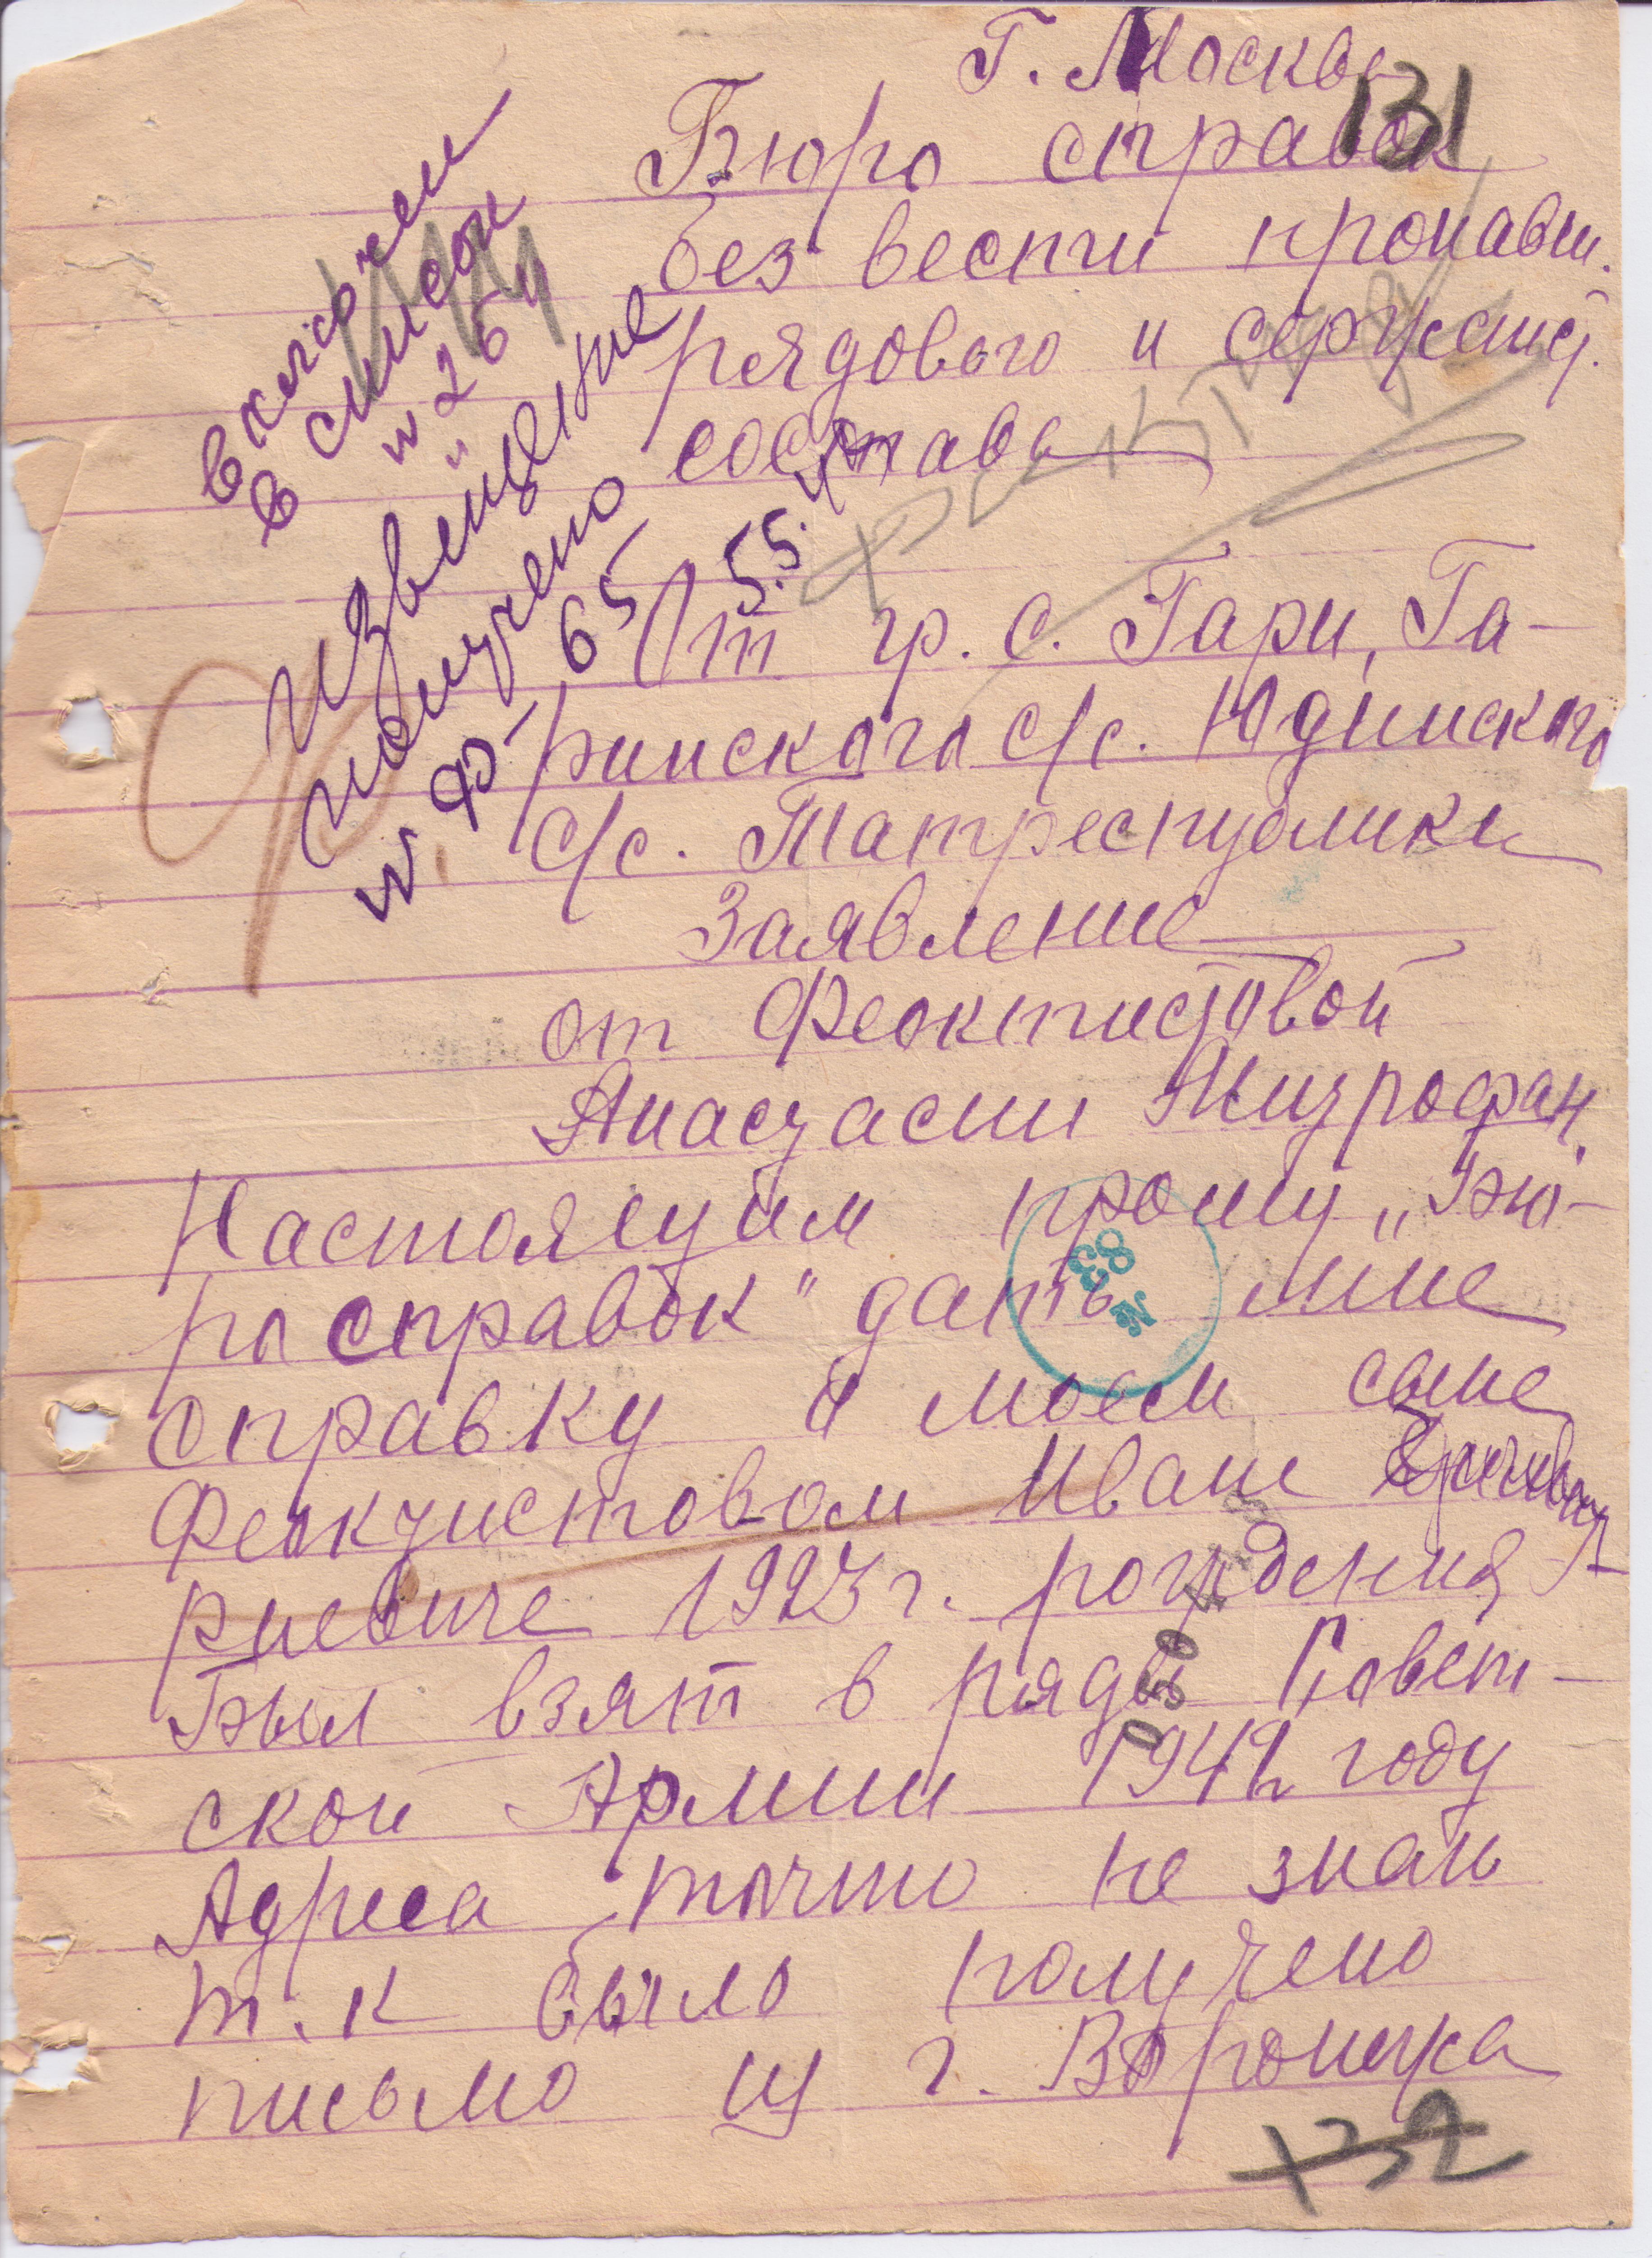 Г. Москва
131
Бюро справок
без вести пропавш.
рядового и сержант.
состава
включен
в список
№ 264
извещение
получено
№ Ф-65
5.5.
От гр. с. Гари, Га-
ринского с/с. Юдинского
с/с. Татреспублики
Заявление
от Феоктистовой
Анастасии Митрофан.
Настоящим прошу „Бю-
ро справок" дать мне
справку о моем сыне
Феоктистовом Иване
риевиче 1923 г. рождения
Был взят в ряды Совет-
ской Армии 1942 году
Адреса точно не знаю
т. к было получено
письмо из г. Воронежа
№ 83
050
132